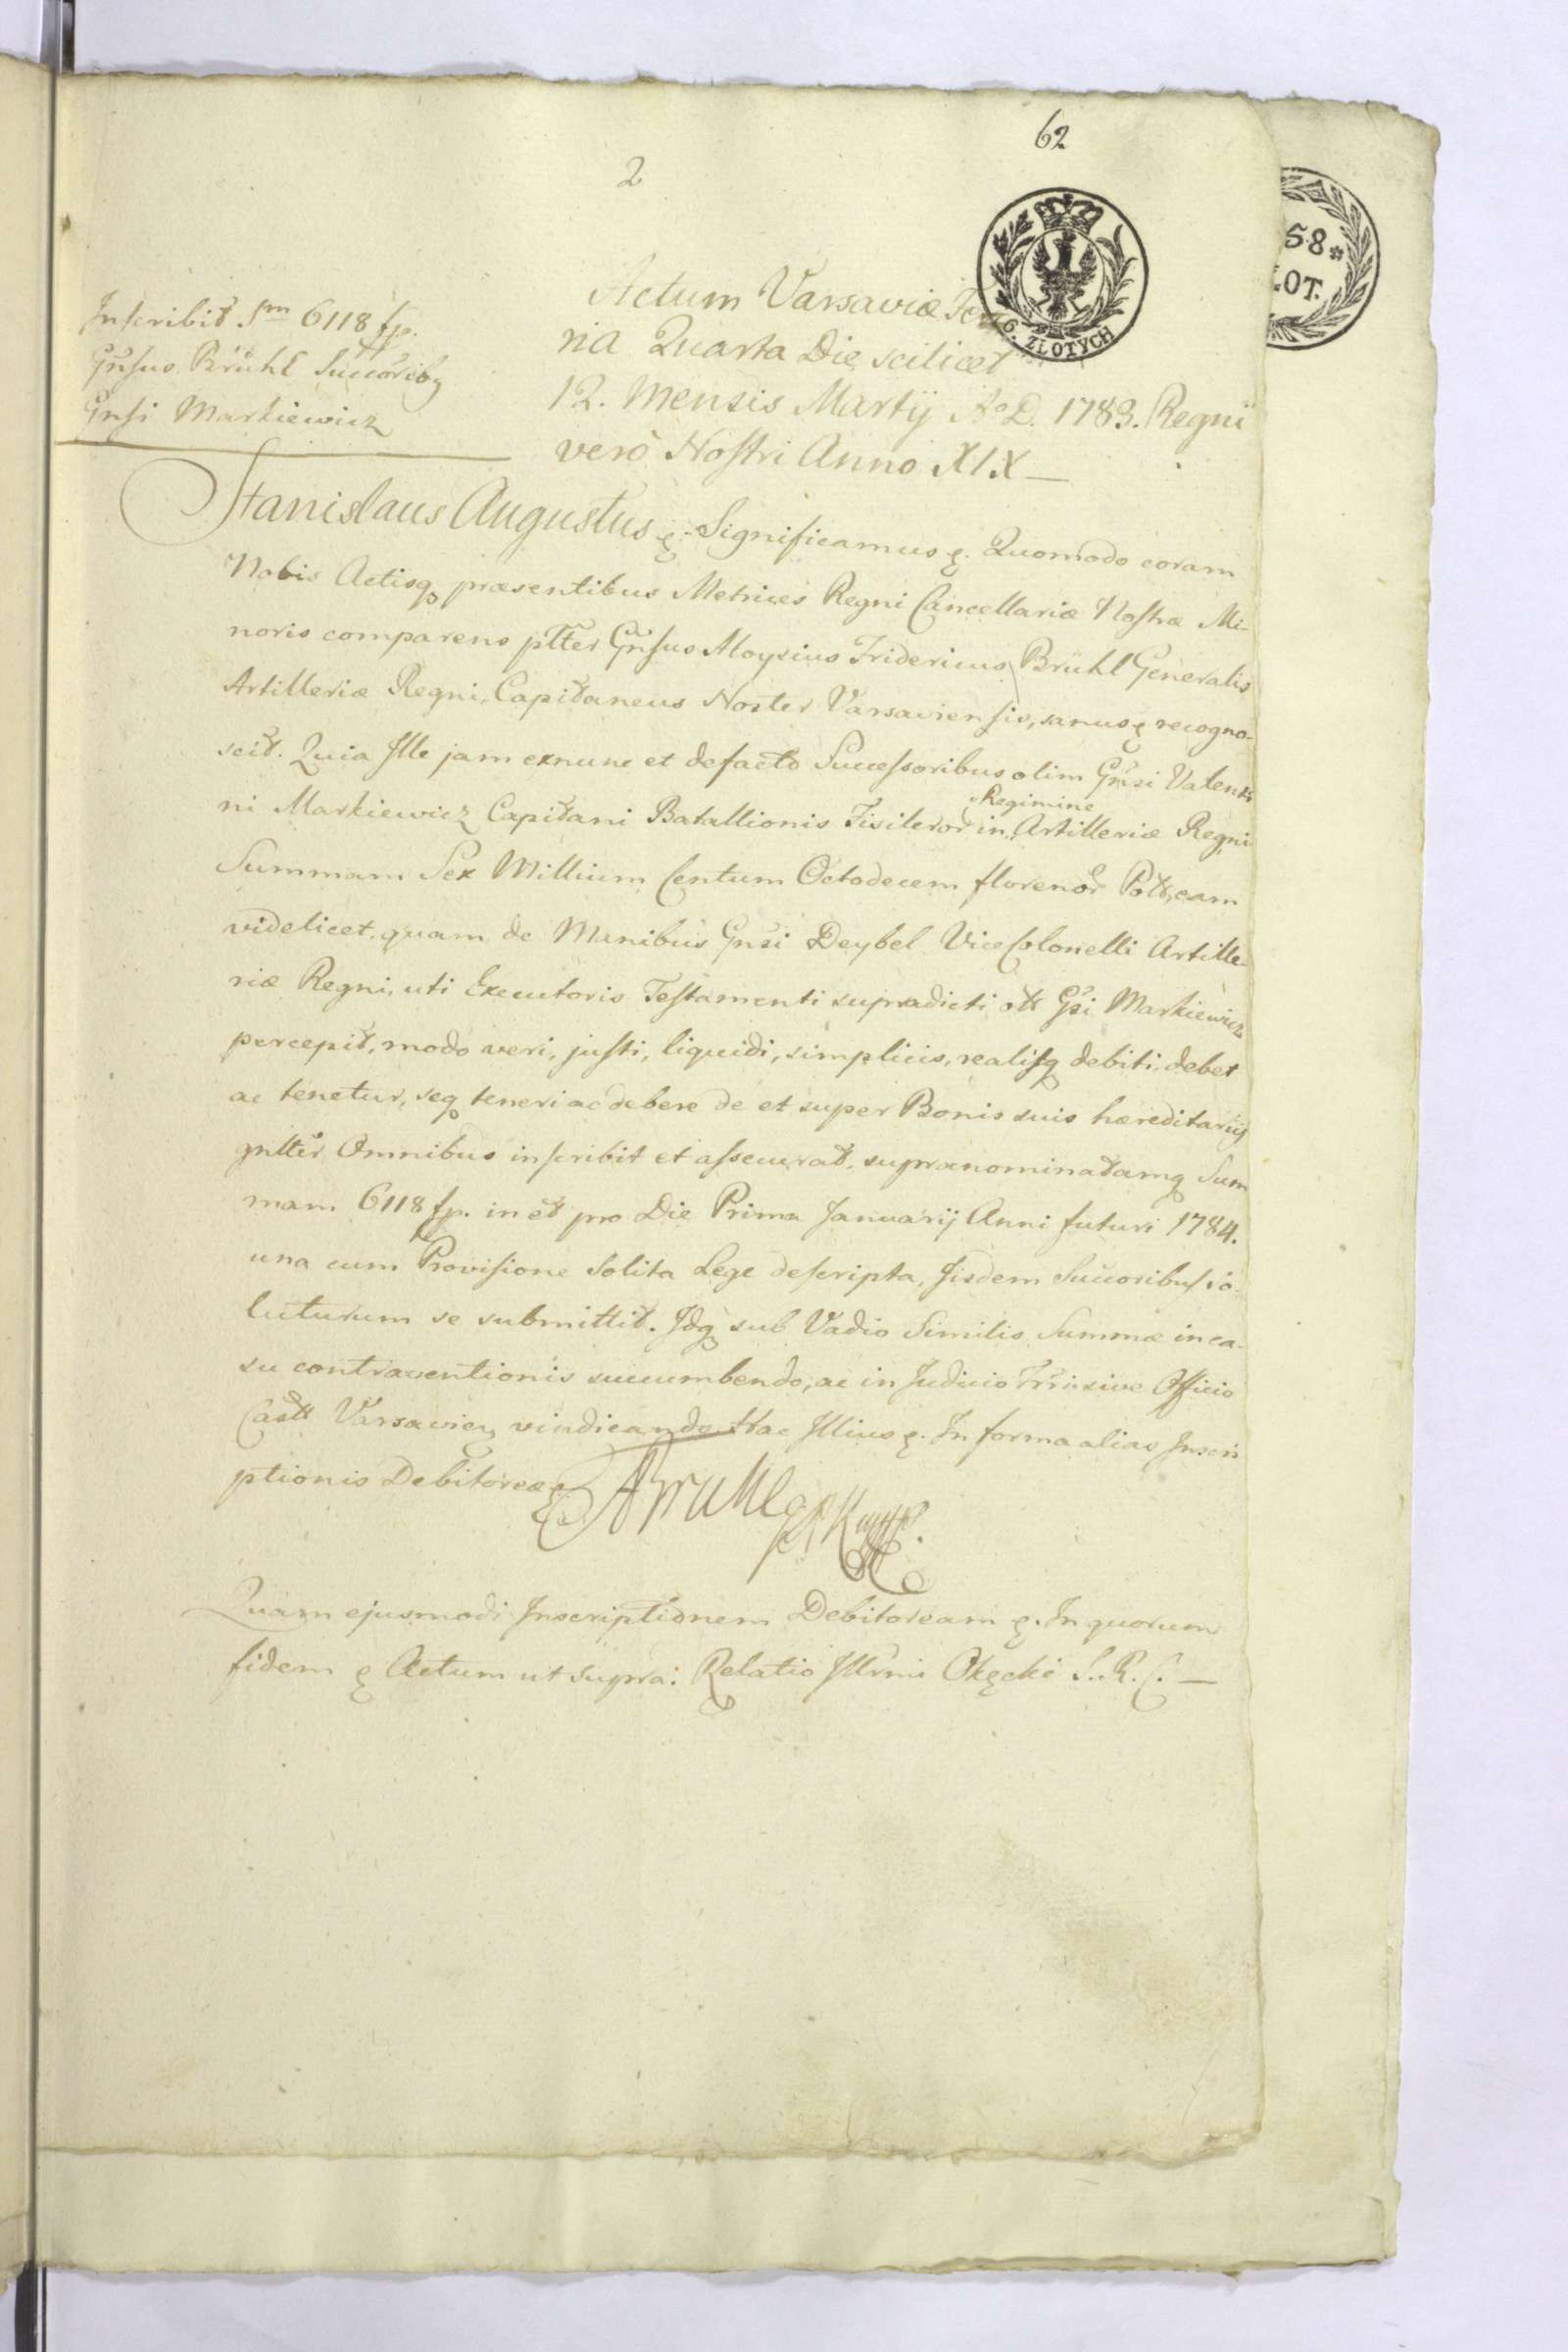 62
2
6. ZLOTYCH
58
LOT.
Inscribit Sm 6118 fp.
Gnsus Brühl Succoriby
Gnsi Markiewicz
Actum Varsaviæ Fe
ria Quarta Die scilicet
12. Mensis Martij Ao D. 1783. Regni
verò Nostri Anno XIX
Stanislaus Augustus &. Significamus &. Quomodo coram
Nobis Actisq præsentibus Metrices Regni Cancellariæ Nostræ Mi-
noris comparens plter Gnsus Aloysius Fridericus Brühl Generalis
Artilleriæ Regni, Capitaneus Noster Varsaviensis, sanus & recogno-
scit. Quia Ille jam exnunc et defacto Successoribus olim Gnsi Valenti
ni Markiewicz Capitani Batallionis Fisileror in Regimine Artilleriæ Regni
Summam Sex Millium Centum Octodecem florenor Polł, eam
videlicet quam de Manibus Gnsi Deybel ViceColonelli Artille-
riæ Regni, uti Executoris Testamenti supradicti oł Gsi Markiewicz
percepit, modo veri, justi, liquidi, simplicis, realisq debiti, debet
ac tenetur, seq teneri ac debere de et super Bonis suis hæreditarijs
gnlter Omnibus inscribit et assecurat, supranominatamq Sum
mam 6118 fp. in et pro Die Prima Januarij Anni futuri 1784.
una cum Provisione Solita Lege descripta, Iisdem Succoribus so-
luturum se submittit. Idq sub Vadio Similis Summæ in ca-
su contraventionis succumbendo, ac in Judicio Trri sive Officio
Castł Varsavien vindicando Hac Illius &. In forma alias Inscri
ptionis Debitoreæ &
ABruhl
Quam ejusmodi Inscriptionem Debitoream &. In quorum
fidem & Actum ut supra: Relatio Illrmi Okęcki S. R. C. —